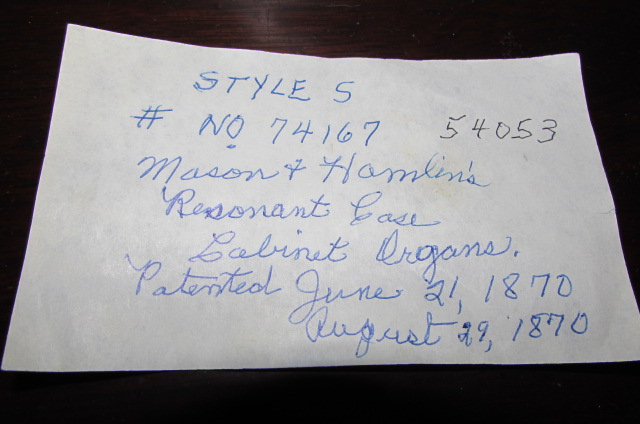 STYLE S
# NO 74167 54053
Mason & Hamlin's
Resonant Case
Cabinet Organs.
Patented June 21, 1870
August 29, 1870